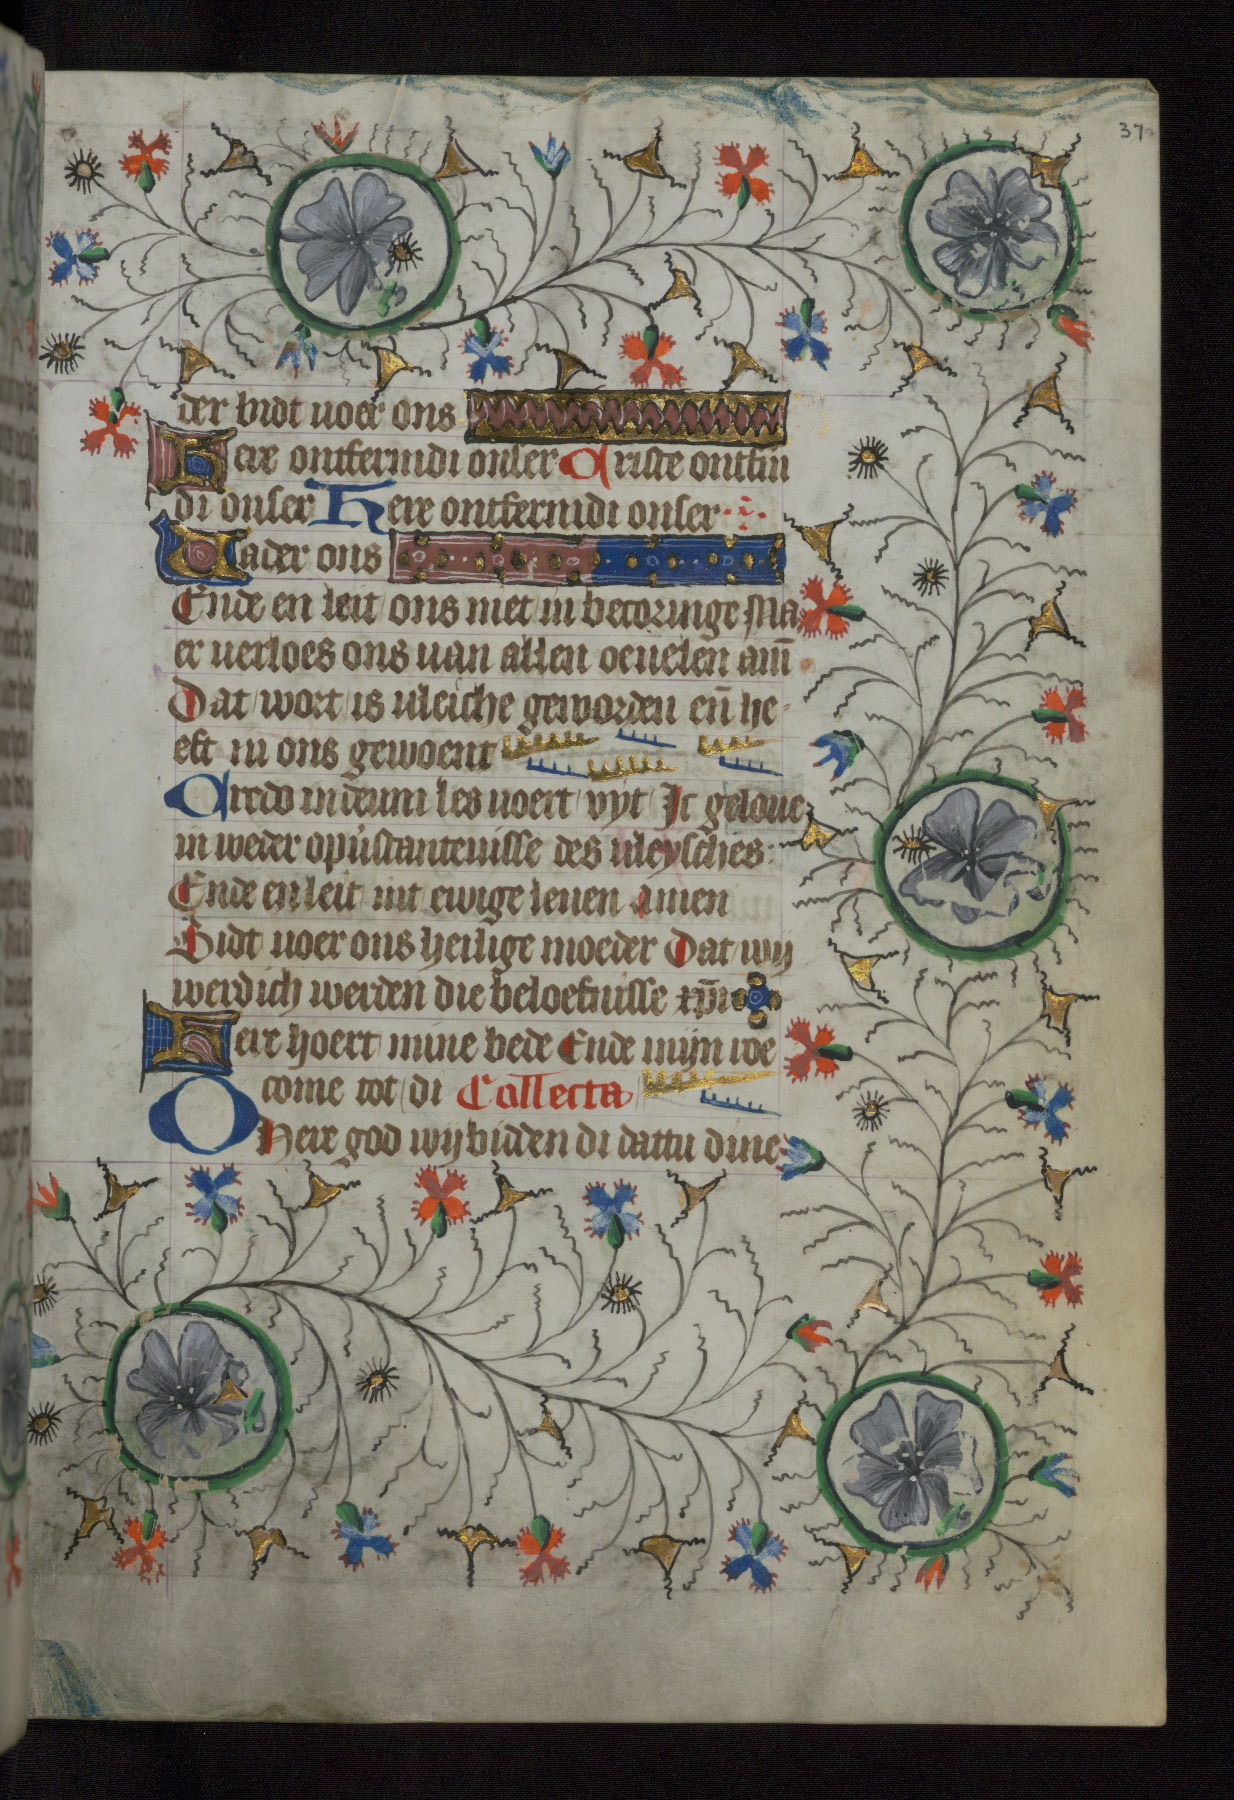 37
der bidt uoer ons
Here ontfermdi onser Criste ontfm
di onser Here ontfermdi onser
Uader ons
Ende en leit ons niet in becoringe Ma
er uerloes ons uan allen oeuelen am̄
Dat wort is uleiche geworden en̄ he
eft in ons gewoent
Credo indeum les uoert vyt Ic geloue
in weder opuistantenisse des uleysches:
Ende en leit int ewige leuen amen
Bidt uoer ons heilige moeder Dat wij
werdich werden die beloefnisse xp̄i
Here hoert mine bede Ende mijn roe
come tot di Collecta
O Here god wij bidden di dattu dine